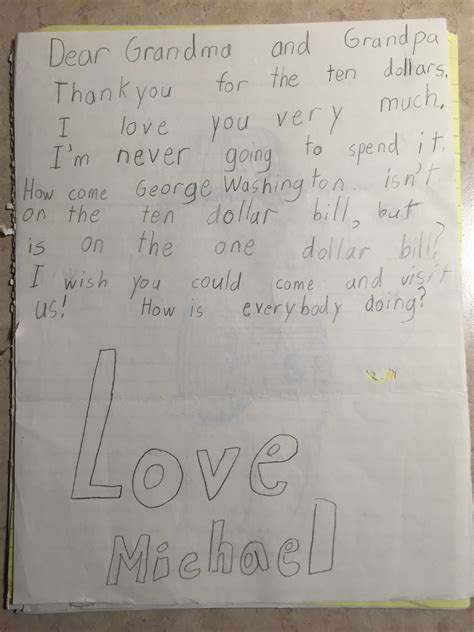 Dear Grandma and Grandpa
Thank you for the ten dollars.
I love you very much.
I'm never going to spend it.
How come George Washington isn't
on the ten dollar bill, but
is on the one dollar bill?
I wish you could come and visit
us! How is everybody doing?
Love
Michael